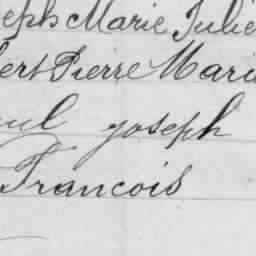 eph Marie Julie
ert Pierre Mari
ul joseph
Francois